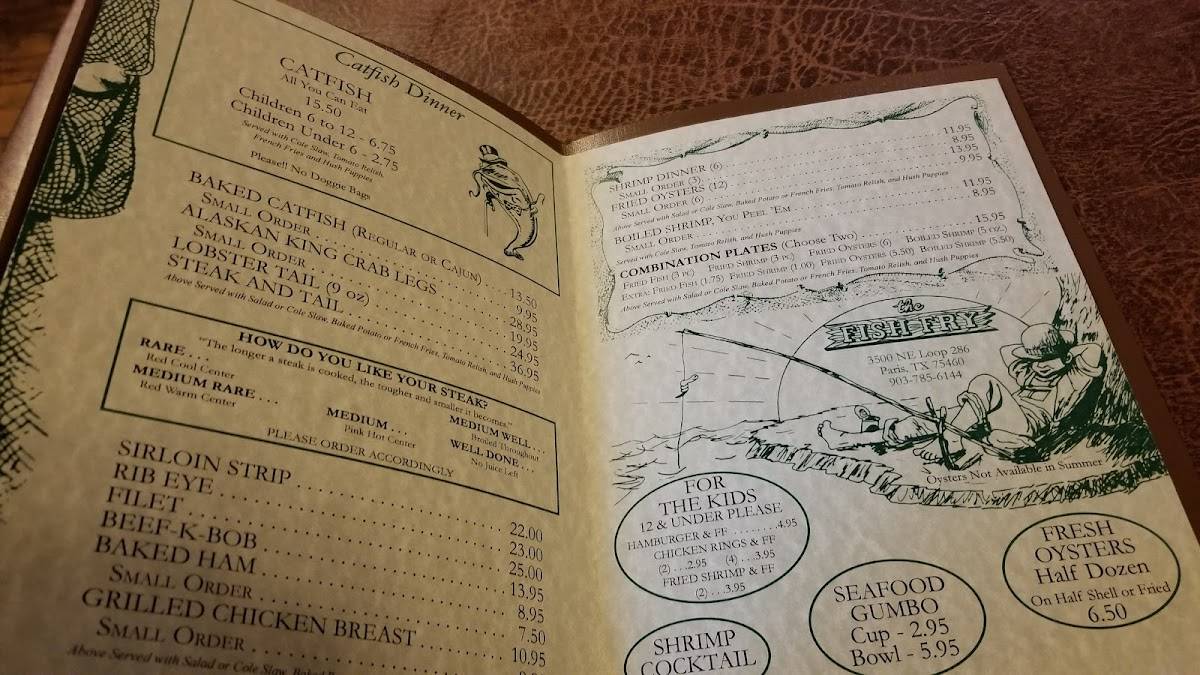 Catfish Dinner
CATFISH
All You Can Eat
15.50
Children 6 to 12 - 6.75
Children Under 6 - 2.75
Served with Cole Slaw, Tomato Relish,
French Fries and Hush Puppies
Please!! No Doggie Bags
BAKED CATFISH (REGULAR OR CAJUN) . . 13.50
SMALL ORDER . . . . . . . . . . . . . . . . . . . . 9.95
ALASKAN KING CRAB LEGS . . . . . . . . . . 28.95
SMALL ORDER . . . . . . . . . . . . . . . . . . . . 19.95
LOBSTER TAIL (9 oz) . . . . . . . . . . . . . . . . 24.95
STEAK AND TAIL . . . . . . . . . . . . . . . . . . 36.95
Above Served with Salad or Cole Slaw, Baked Potato or French Fries, Tomato Relish, and Hush Puppies
HOW DO YOU LIKE YOUR STEAK?
"The longer a steak is cooked, the tougher and smaller it becomes."
RARE . . .
Red Cool Center
MEDIUM RARE . . .
Red Warm Center
MEDIUM . . .
Pink Hot Center
MEDIUM WELL . . .
Broiled Throughout
WELL DONE . . .
No Juice Left
PLEASE ORDER ACCORDINGLY
SIRLOIN STRIP . . . . . . . . . . . . . . . . . . . . 22.00
RIB EYE . . . . . . . . . . . . . . . . . . . . . . . . . 23.00
FILET . . . . . . . . . . . . . . . . . . . . . . . . . . . 25.00
BEEF-K-BOB . . . . . . . . . . . . . . . . . . . . . . 13.95
BAKED HAM . . . . . . . . . . . . . . . . . . . . . . 8.95
SMALL ORDER . . . . . . . . . . . . . . . . . . . . 7.50
GRILLED CHICKEN BREAST . . . . . . . . . . 10.95
SMALL ORDER . . . . . . . . . . . . . . . . . . . .
Above Served with Salad or Cole Slaw, Baked
SHRIMP DINNER (6) . . . . . . . . . . . . . . . . 11.95
SMALL ORDER (3) . . . . . . . . . . . . . . . . . . 8.95
FRIED OYSTERS (12) . . . . . . . . . . . . . . . . 13.95
SMALL ORDER (6) . . . . . . . . . . . . . . . . . . 9.95
Above Served with Salad or Cole Slaw, Baked Potato or French Fries, Tomato Relish, and Hush Puppies
BOILED SHRIMP, YOU PEEL 'EM . . . . . . . . 11.95
SMALL ORDER . . . . . . . . . . . . . . . . . . . . 8.95
Served with Cole Slaw, Tomato Relish, and Hush Puppies
COMBINATION PLATES (Choose Two) . . . . . 15.95
FRIED FISH (3 PC) FRIED SHRIMP (3 PC) FRIED OYSTERS (6) BOILED SHRIMP (5 OZ.)
EXTRA: FRIED FISH (1.75) FRIED SHRIMP (1.00) FRIED OYSTERS (5.50) BOILED SHRIMP (5.50)
Above Served with Salad or Cole Slaw, Baked Potato or French Fries, Tomato Relish, and Hush Puppies
the
FISH FRY
3500 NE Loop 286
Paris, TX 75460
903-785-6144
Oysters Not Available in Summer
FOR
THE KIDS
12 & UNDER PLEASE
HAMBURGER & FF . . . . . . . . .4.95
CHICKEN RINGS & FF
(2) . . .2.95 (4) . . .3.95
FRIED SHRIMP & FF
(2) . . .3.95
SEAFOOD
GUMBO
Cup - 2.95
Bowl - 5.95
FRESH
OYSTERS
Half Dozen
On Half Shell or Fried
6.50
SHRIMP
COCKTAIL